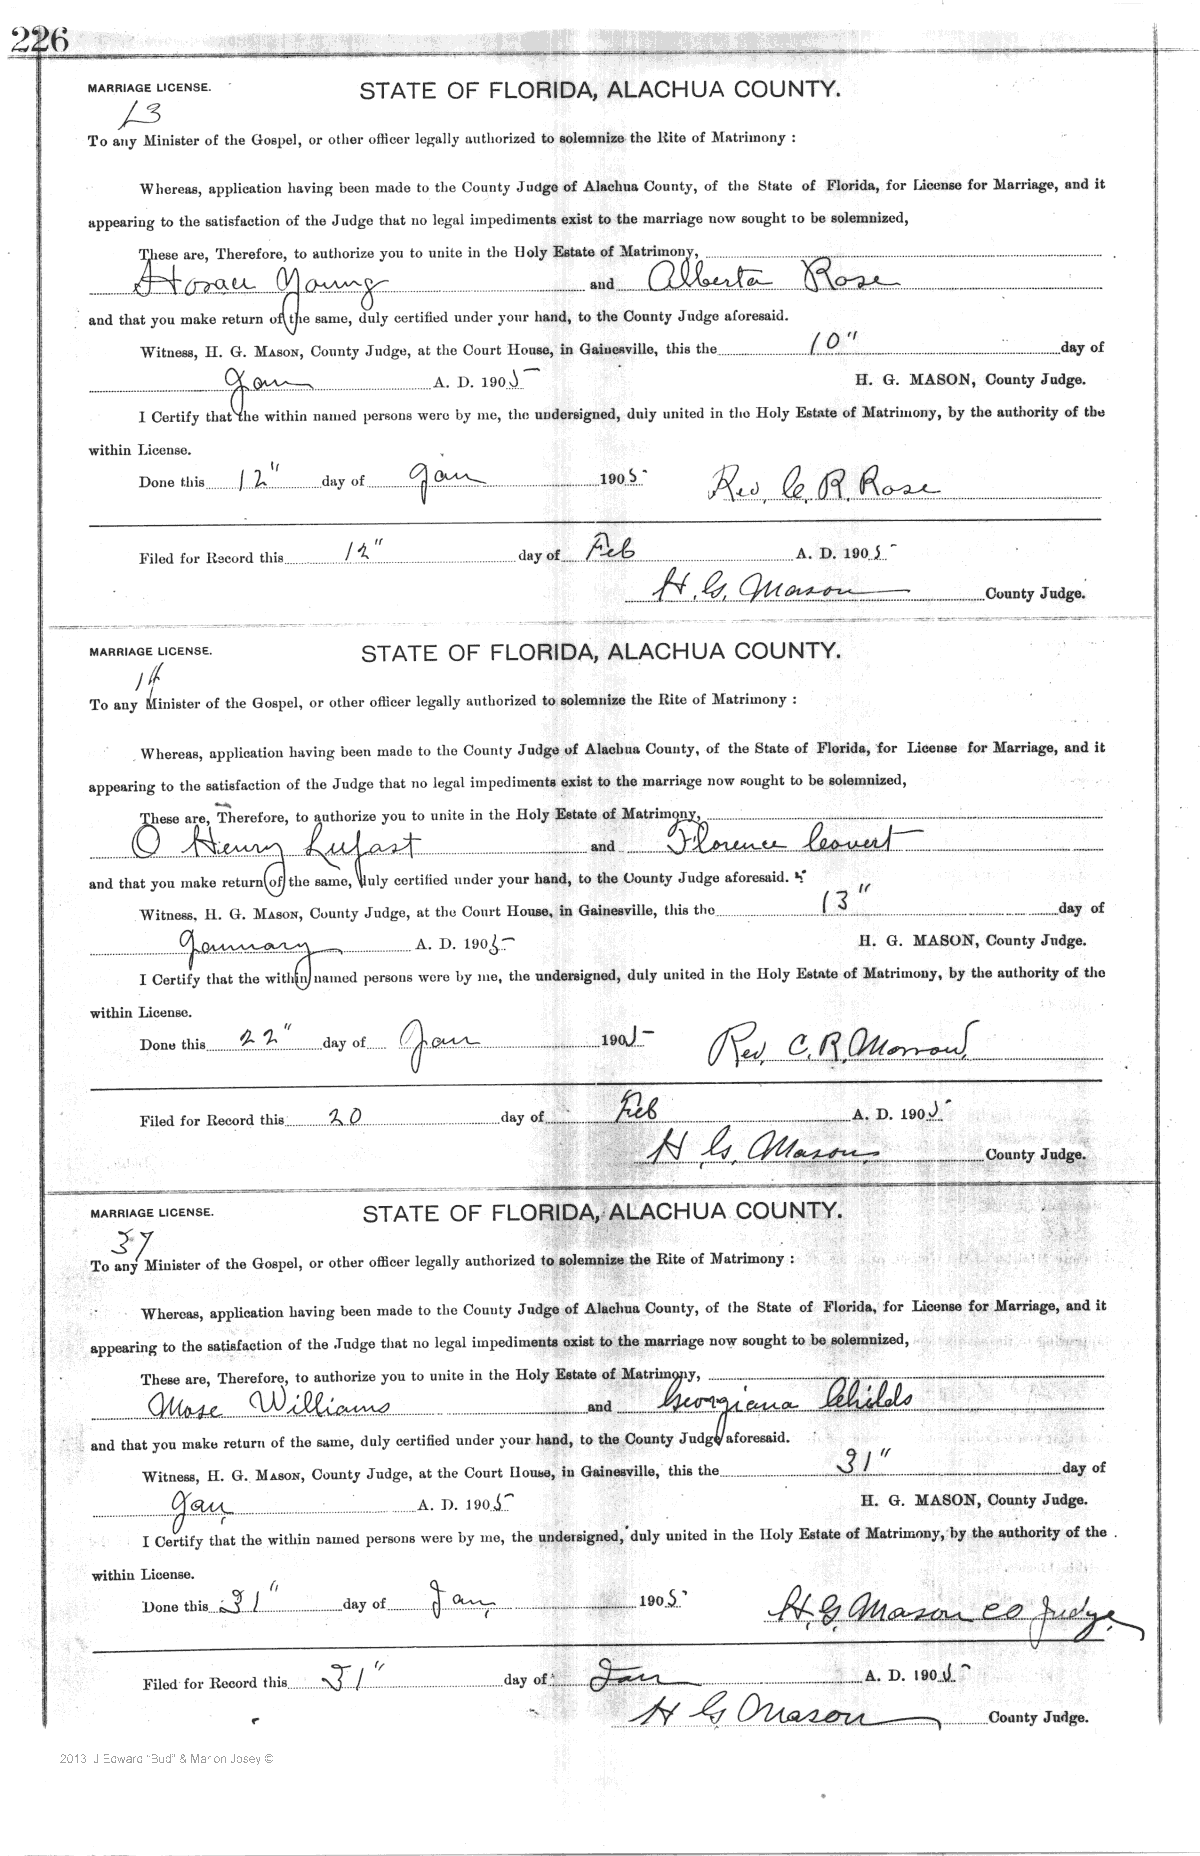 226
MARRIAGE LICENSE. STATE OF FLORIDA, ALACHUA COUNTY.
13
To any Minister of the Gospel, or other officer legally authorized to solemnize the Rite of Matrimony :
Whereas, application having been made to the County Judge of Alachua County, of the State of Florida, for License for Marriage, and it
appearing to the satisfaction of the Judge that no legal impediments exist to the marriage now sought to be solemnized,
These are, Therefore, to authorize you to unite in the Holy Estate of Matrimony,
Horace Young and Alberta Rose
and that you make return of the same, duly certified under your hand, to the County Judge aforesaid.
Witness, H. G. MASON, County Judge, at the Court House, in Gainesville, this the 10" day of
Jan A. D. 1905 H. G. MASON, County Judge.
I Certify that the within named persons were by me, the undersigned, duly united in the Holy Estate of Matrimony, by the authority of the
within License.
Done this 12" day of Jan 1905 Rev. C. R. Rose
Filed for Record this 12" day of Feb A. D. 1905
H. G. Mason County Judge.
MARRIAGE LICENSE. STATE OF FLORIDA, ALACHUA COUNTY.
14
To any Minister of the Gospel, or other officer legally authorized to solemnize the Rite of Matrimony :
Whereas, application having been made to the County Judge of Alachua County, of the State of Florida, for License for Marriage, and it
appearing to the satisfaction of the Judge that no legal impediments exist to the marriage now sought to be solemnized,
These are, Therefore, to authorize you to unite in the Holy Estate of Matrimony,
O Henry Lufast and Florence Covert
and that you make return of the same, duly certified under your hand, to the County Judge aforesaid.
Witness, H. G. MASON, County Judge, at the Court House, in Gainesville, this the 13" day of
January A. D. 1905 H. G. MASON, County Judge.
I Certify that the within named persons were by me, the undersigned, duly united in the Holy Estate of Matrimony, by the authority of the
within License.
Done this 22" day of Jan 1905 Rev. C. R. Morrow
Filed for Record this 20 day of Feb A. D. 1905
H. G. Mason County Judge.
MARRIAGE LICENSE. STATE OF FLORIDA, ALACHUA COUNTY.
37
To any Minister of the Gospel, or other officer legally authorized to solemnize the Rite of Matrimony :
Whereas, application having been made to the County Judge of Alachua County, of the State of Florida, for License for Marriage, and it
appearing to the satisfaction of the Judge that no legal impediments exist to the marriage now sought to be solemnized,
These are, Therefore, to authorize you to unite in the Holy Estate of Matrimony,
Mose Williams and Georgiana Childs
and that you make return of the same, duly certified under your hand, to the County Judge aforesaid.
Witness, H. G. MASON, County Judge, at the Court House, in Gainesville, this the 31" day of
Jan, A. D. 1905 H. G. MASON, County Judge.
I Certify that the within named persons were by me, the undersigned, duly united in the Holy Estate of Matrimony, by the authority of the
within License.
Done this 31" day of Jan, 1905 H. G. Mason Co Judge.
Filed for Record this 31" day of Jan A. D. 1905
H G Mason County Judge.
2013 J Edward "Bud" & Marion Josey ©